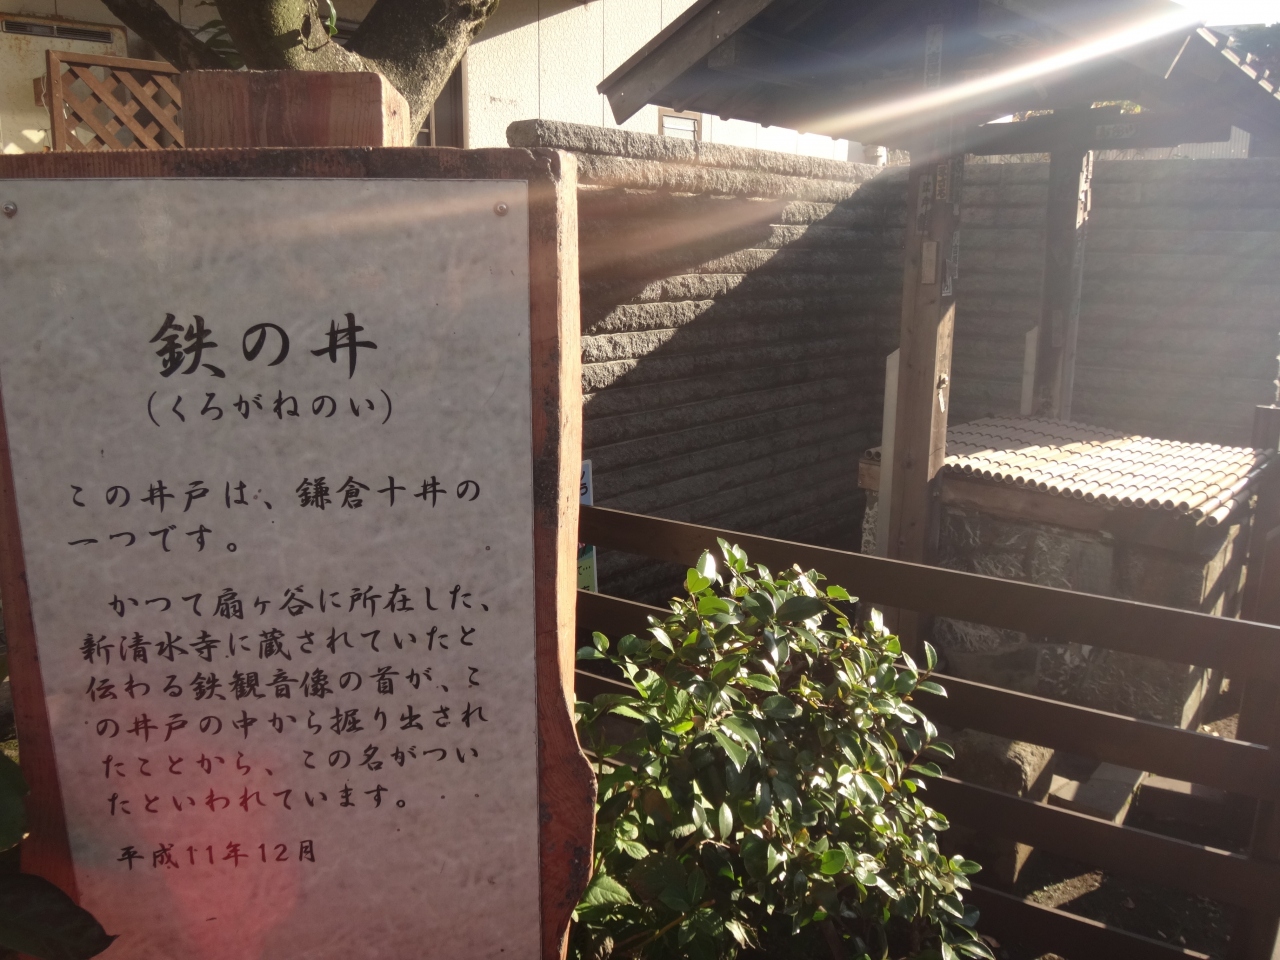 鉄の井
(くろがねのい)
この井戸は、鎌倉十井の
一つです。
かつて扇ヶ谷に所在した、
新清水寺に蔵されていたと
伝わる鉄観音像の首が、こ
の井戸の中から掘り出され
たことから、この名がつい
たといわれています。
平成11年12月